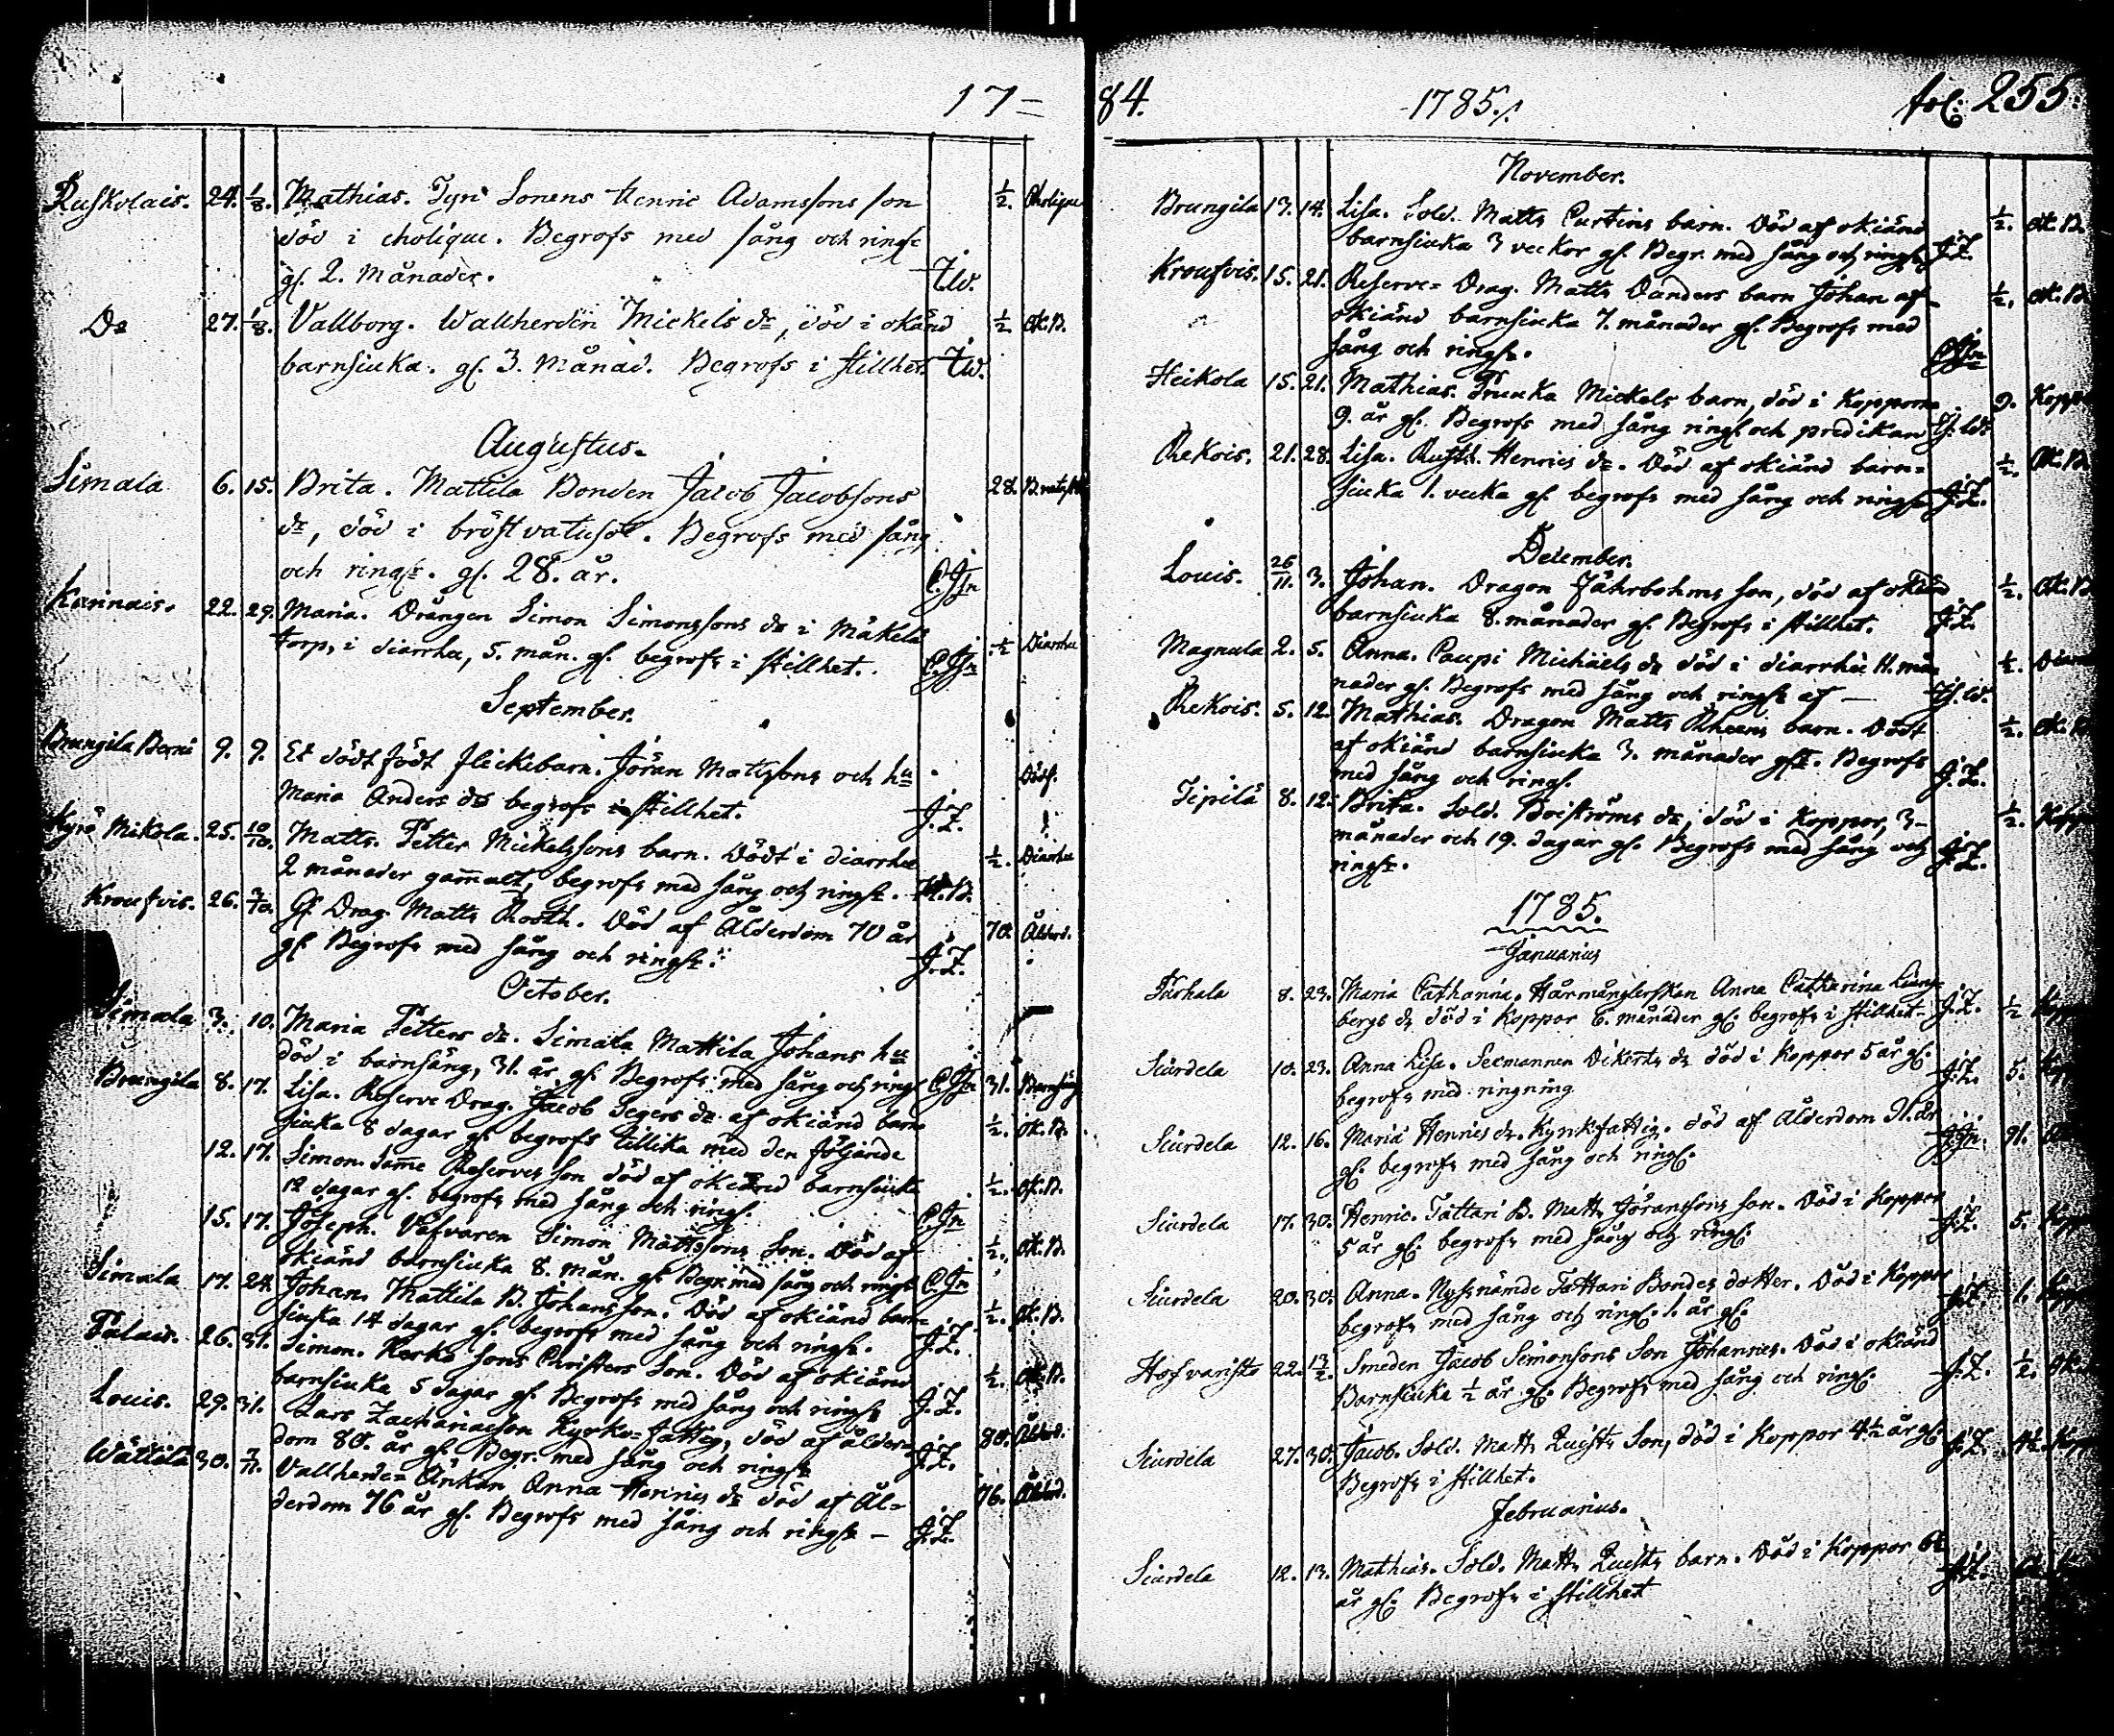 17=
Ruskolais. 24. 1/8. Mathias. Tyri Sonens Henric Adamssons son 1/2. Cholique
död i cholique. Begrofs med sång och ringn:
gl. 2. månader. J.W.
Do 27. 1/8. Vallborg. Wallherden Mickels dr, död i okänd 1/2. Ok.B.
barnsiuka. gl. 3. månad. Begrofs i stillhet. J.W.
Augustus.
Simala 6. 15. Brita. Mattila Bonden Jacob Jacobsons 28.
dr, död i bröstvatusot. Begrofs med sång
och ringn. gl. 28. år. C.Jn
Karinais. 22. 29. Maria. Drängen Simon Simonssons dr i Mäkelä 1/2 Diarrhee
torp, i diarrhee, 5. mån. gl. begrofs i stillhet. C.Jn
September.
Brungila Berni 9. 9. Et dödt födt flickebarn. Jöran Mattssons och hu Dödf.
Maria Anders dr begrofs i stillhet. J.Z.
Kyrö Mikola. 25. 10/10. Matts. Petter Mickelssons barn. Dödt i diarrhee 1/2. Diarrhee
2 månader gammalt, begrofs med sång och ringn.
Kroufvis. 26. 3/10. Gl. Drag. Matts Rooth. Död af Ålderdom 70 år 70. Ålderd.
gl. Begrofs med sång och ringn: J.Z.
October.
Simala 3. 10. Maria Petters dr. Simala Mattila Johans hu
död i barnsäng, 31. år gl. Begrofs med sång och ringn C.Jn 31. Barnsäng
Brungila 8. 17. Lisa. Reserve Drag. Jacob Segers dr af okiänd barn
siuka 8 dagar gl. begrofs tillika med den följande 1/2. Ok.B.
12. 17. Simon. Samme Reserves son död af okiänd barnsiuka
12 dagar gl. begrofs med sång och ringn. C.Jn 1/2. Ok.B.
15. 17. Joseph. Väfvaren Simon Mattssons Son. Död af
okiänd barnsiuka 8. mån. gl. Begr. med sång och ringn C.Jn 1/2. Ok.B.
Simala 17. 24. Johan. Mattila B. Johans son. Död af okiänd barn=
siuka 14 dagar gl. begrofs med sång och ringn. J.Z. 1/2. Ok.B.
Palais. 26. 31. Simon. Kerko sons Christers Son. Död af okiänd
barnsiuka 5 dagar gl. Begrofs med sång och ringn J.Z. 1/2. Ok.B.
Louis. 29. 31. Lars Zachariaeson Kyrko=fattig, död af ålder=
dom 80. år gl. Begr. med sång och ringn J.Z. 80. Ålderd.
Wättilä 30. 7/11. Vallherde=Änkan Anna Henrics dr död af Ål=
derdom 76 år gl. Begrofs med sång och ringn — J.Z. 76. Ålderd.
84. 1785./. fol: 255:
November.
Brungila 13. 14. Lisa. Sold. Matts Curtins barn. Död af okiänd 1/2. Ok.B.
barnsiuka 3 veckor gl. Begr. med sång och ringn J.Z.
Kroufvis. 15. 21. Reserve=Drag. Matts Danders barn Johan af 1/2. Ok.B.
okiänd barnsiuka 7. månader gl. Begrofs med
sång och ringn. C.Jn
Heikola 15. 21. Mathias. Mickels barn, död i Kopporne 9. Kopp
9. år gl. Begrofs med sång ringn och predikan J.W.
Rekois. 21. 28. Lisa. Henrics dr. Död af okiänd barn= 1/2. Ok.B.
siuka 1. vecka gl. begrofs med sång och ringn J.Z.
December.
Louis. 26/11. 3. Johan. Dragon Fährbohms son, död af okiänd 1/2. Ok.B.
barnsiuka 8. månader gl. Begrofs i stillhet. J.Z.
Magnula 2. 5. Anna. Caupi Michaels dr död i diarrhee 11. må= 1/2. Diarrh
nader gl. Begrofs med sång och ringn af — J.W.
Rekois. 5. 12. Mathias. Dragon Matts Rheens barn. Dödt 1/2. Ok.B.
af okiänd barnsiuka 3. månader gl. Begrofs
med sång och ringn. J.Z.
Tipilä 8. 12. Brita. Sold. Boeströms dr, död i Koppor, 3- 1/2. Kopp
månader och 19. dagar gl. Begrofs med sång och
ringn. J.Z.
1785.
Januarius
8. 23. Maria Catharina. Hårmånglerskan Anna Catharina Liung=
bergs dr död i Koppor 6. månader gl. begrofs i stillhet J.Z. 1/2 Kopp
Siurdela 10. 23. Anna Lisa. Seemannen Dikerts dr död i Koppor 5 år gl.
begrofs med ringning J.Z. 5. Kopp
Siurdela 12. 16. Maria Henrics dr. Kyrkfattig. död af Ålderdom 91. år
gl. begrofs med sång och ringn. 91.
Siurdela 17. 30. Henric. Tattari B. Matts Göranssons son. Död i Koppor
5 år gl. begrofs med sång och ringn. J.Z. 5. Kopp
Siurdela 20. 30. Anna. Nyssnämde Tattari Bondes dotter. Död i Koppor
begrofs med sång och ringn. 1. år gl. J.Z. 1. Kopp
Hofvaristo 22. 13/2. Smeden Jacob Simonsons Son Johannes. Död i okiänd
Barnsiuka 1/2 år gl. Begrofs med sång och ringn. J.Z. 1/2. Ok
Siurdela 27. 30. Jacob. Sold. Matts Quists Son, död i Koppor 4 1/2 år gl. J.Z. 4 1/2. Kopp
Begrofs i stillhet.
Februarius.
Siurdela 12. 13. Mathias. Sold. Matts Quists barn. Död i Koppor
år gl. Begrofs i stillhet J.Z.